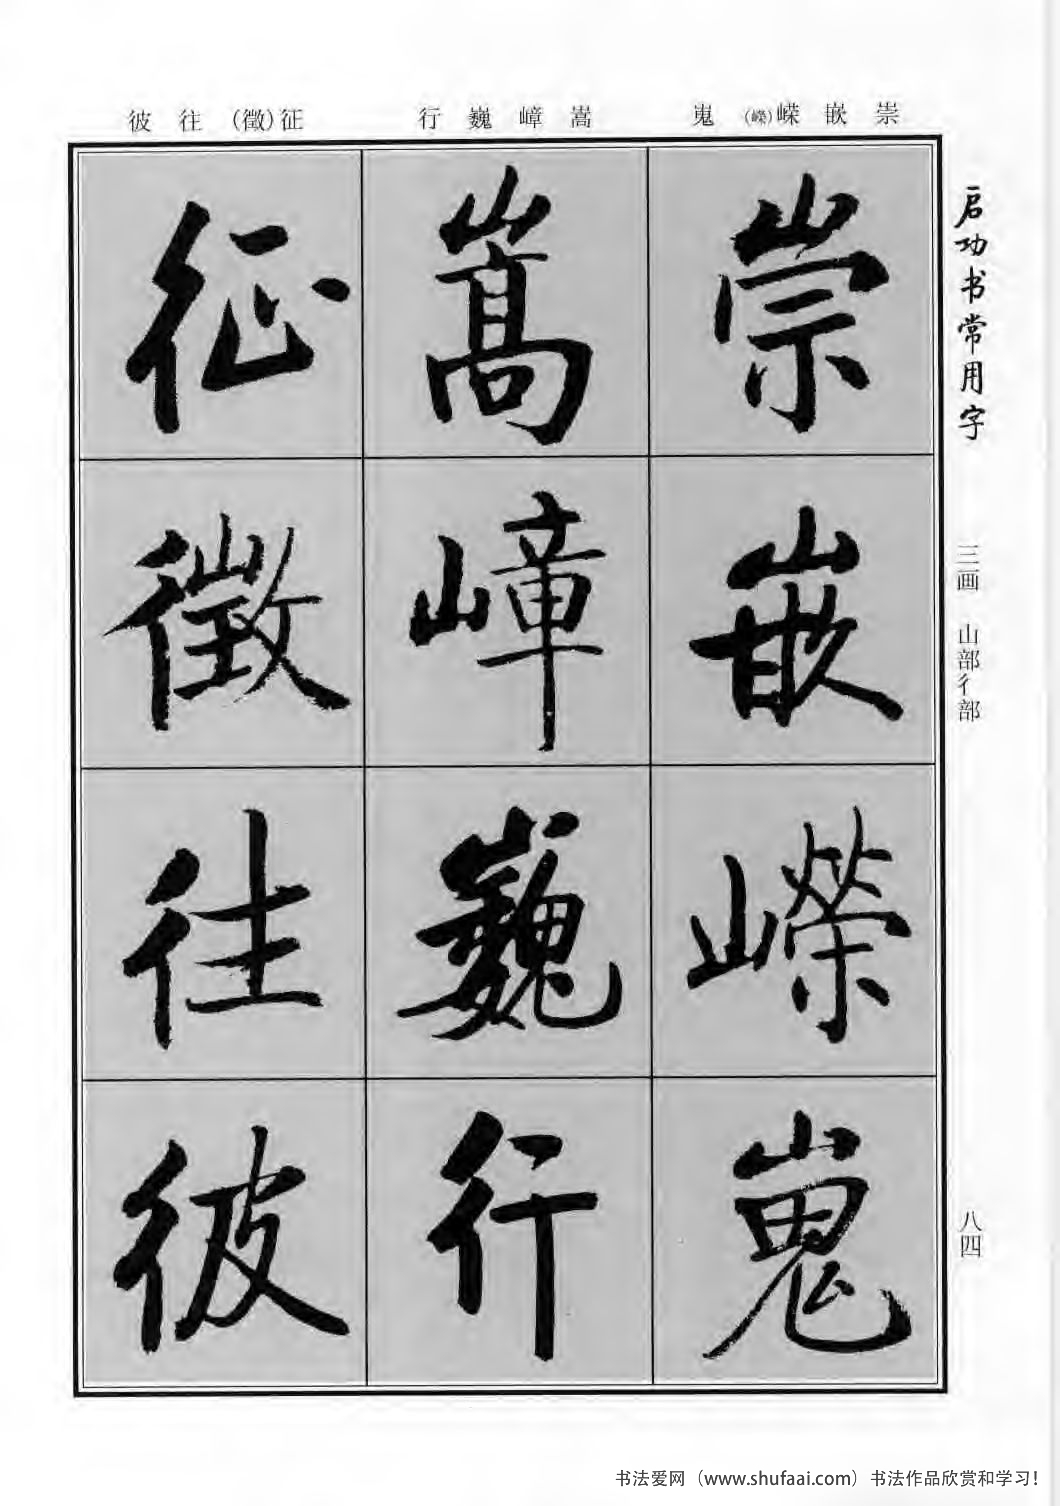 启功书常用字
三画 山部彳部
八四
崇嵌嵘(嶸)嵬
嵩嶂巍行
征(徵)往彼
崇
嵌
嶸
嵬
嵩
嶂
巍
行
征
徵
往
彼
书法爱网（www.shufaai.com）书法作品欣赏和学习！